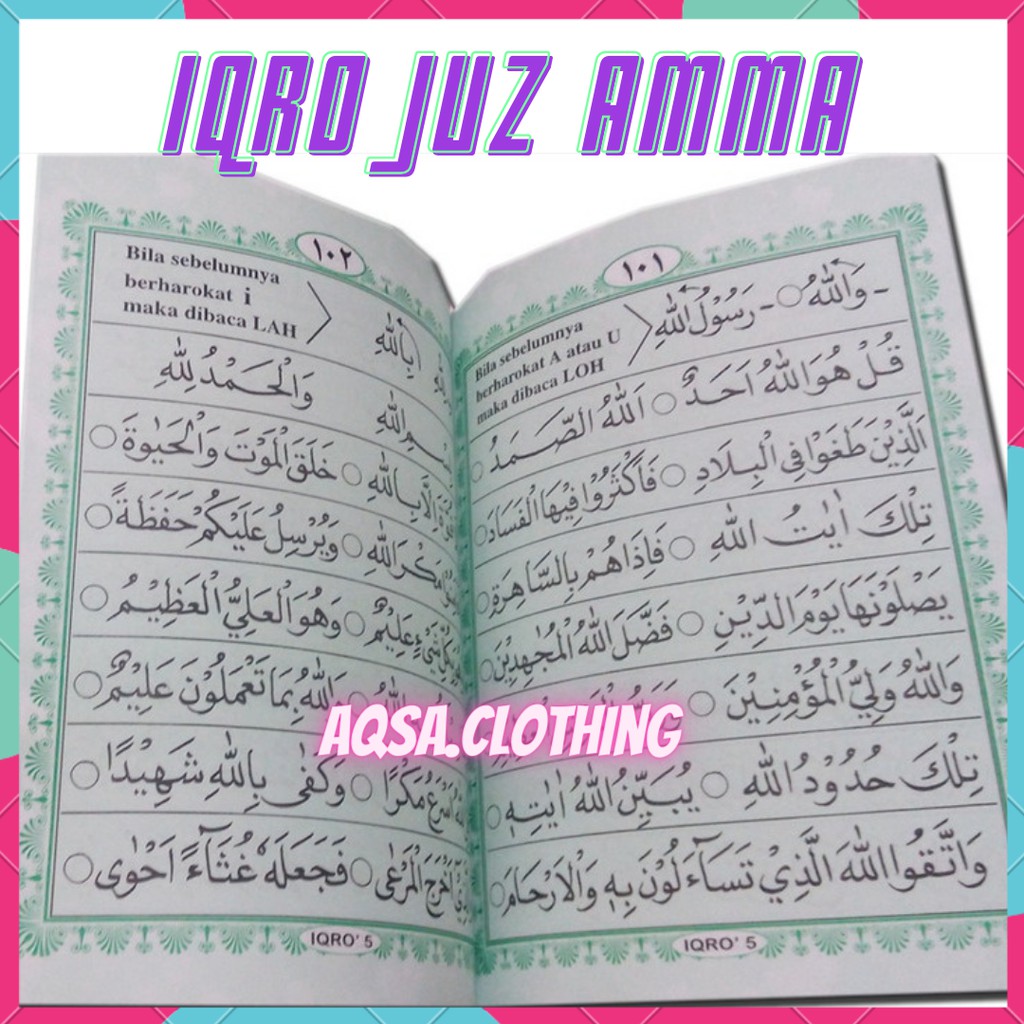 IQRO JUZ AMMA
١٠١
- وَاللّٰهُ ○ - رَسُوْلُ اللّٰهِ
Bila sebelumnya
berharokat A atau U
maka dibaca LOH
قُلْ هُوَ اللّٰهُ اَحَدٌ ○ اَللّٰهُ الصَّمَدُ
الَّذِيْنَ طَغَوْا فِى الْبِلَادِ ○ فَاَكْثَرُوْا فِيْهَا الْفَسَادَ
تِلْكَ اٰيٰتُ اللّٰهِ ○ فَاِذَاهُمْ بِالسَّاهِرَةِ
يَصْلَوْنَهَا يَوْمَ الدِّيْنِ ○ فَضَّلَ اللّٰهُ الْمُجٰهِدِيْنَ
وَاللّٰهُ وَلِيُّ الْمُؤْمِنِيْنَ ○
تِلْكَ حُدُوْدُ اللّٰهِ ○ يُبَيِّنُ اللّٰهُ اٰيٰتِهٖ
وَاتَّقُوا اللّٰهَ الَّذِيْ تَسَاۤءَلُوْنَ بِهٖ وَالْاَرْحَامَ
IQRO' 5
١٠٢
بِاللّٰهِ
Bila sebelumnya
berharokat i
maka dibaca LAH
اللّٰهِ وَالْحَمْدُ لِلّٰهِ
اِلَّا بِاللّٰهِ ○ خَلَقَ الْمَوْتَ وَالْحَيٰوةَ ○
مَكْرَ اللّٰهِ ○ وَيُرْسِلُ عَلَيْكُمْ حَفَظَةً ○
شَيْءٍ عَلِيْمٌ ○ وَهُوَ الْعَلِيُّ الْعَظِيْمُ ○
وَاللّٰهُ بِمَا تَعْمَلُوْنَ عَلِيْمٌ ○
اَسْرَعُ مَكْرًا ○ وَكَفٰى بِاللّٰهِ شَهِيْدًا ○
اَخْرَجَ الْمَرْعٰى ○ فَجَعَلَهٗ غُثَاۤءً اَحْوٰى ○
IQRO' 5
AQSA.CLOTHING